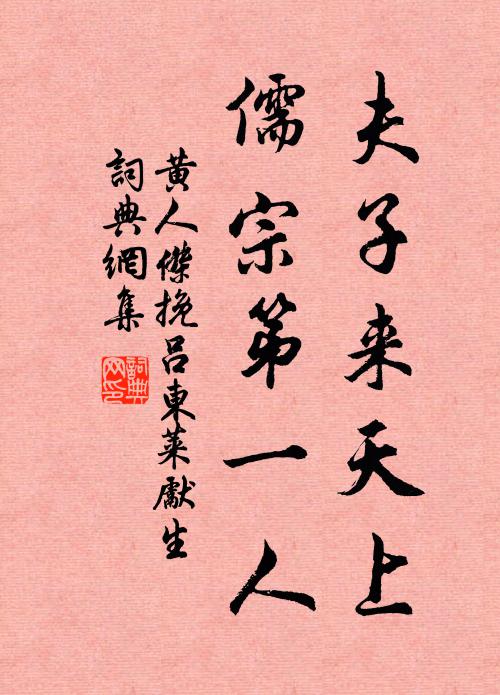 夫子来天上
儒宗第一人
黄人傑挽吕東萊獻生
詞典網集
詞典
网印